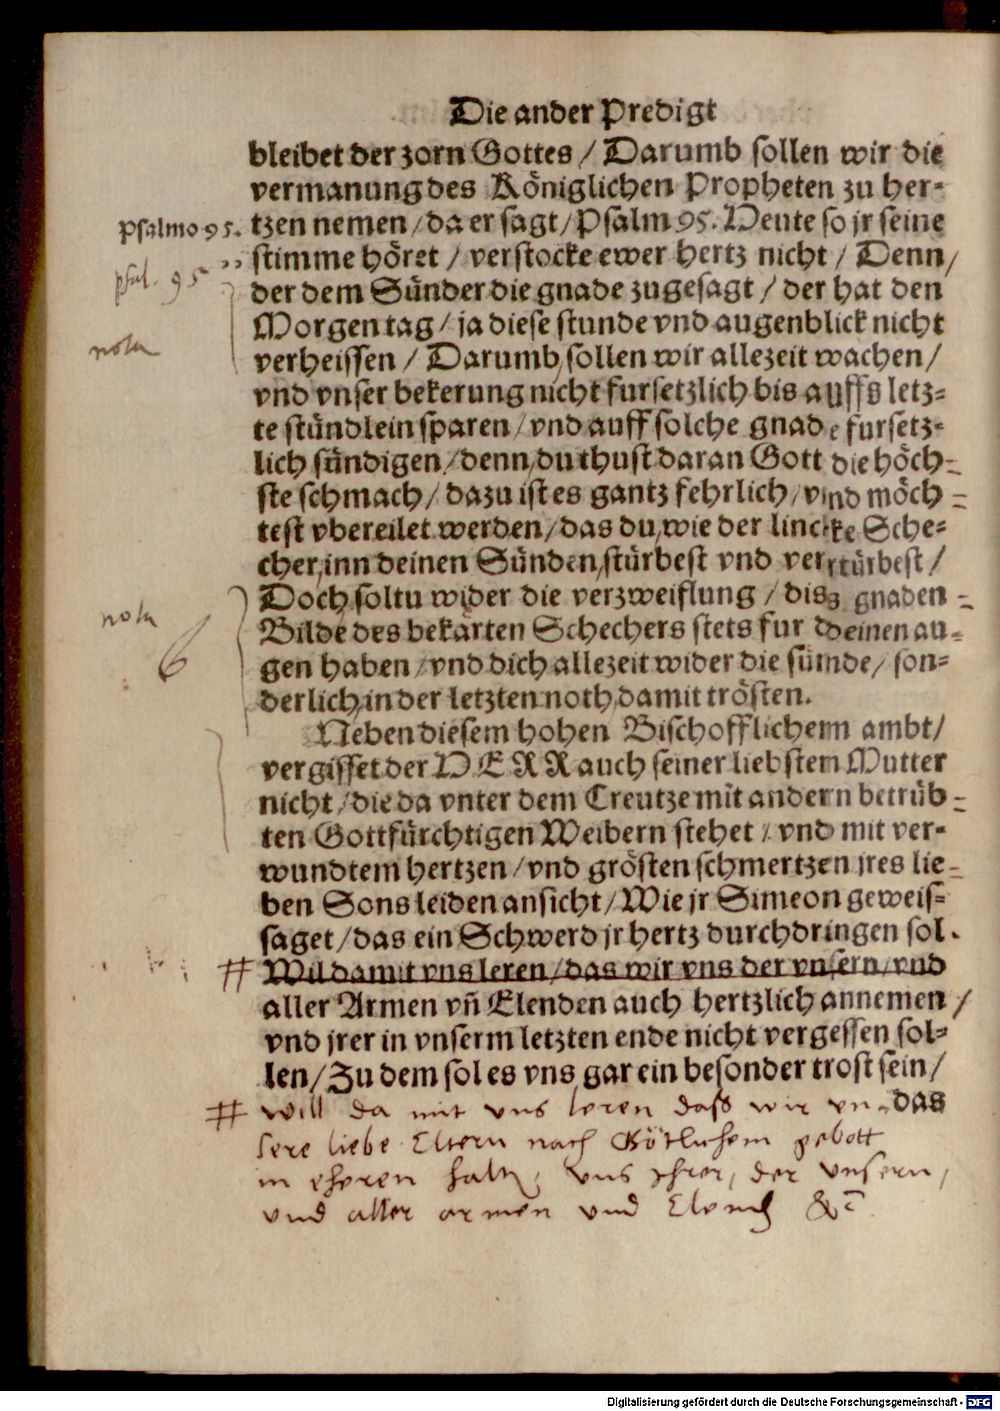 Die ander Predigt
bleibet der zorn Gottes / Darumb sollen wir die
vermanung des Königlichen Propheten zu her-
Psalmo 95.
tzen nemen / da er sagt / Psalm 95. Heute so jr seine
stimme höret / verstocke ewer hertz nicht / Denn /
psal. 95
der dem Sünder die gnade zugesagt / der hat den
Morgen tag / ja diese stunde vnd augenblick nicht
nota
verheissen / Darumb, sollen wir allezeit wachen /
vnd vnser bekerung nicht fursetzlich bis auffs letz=
te stündlein sparen / vnd auff solche gnade fursetz-
lich sündigen / denn, du thust daran Gott die höch=
ste schmach / dazu ist es gantz fehrlich / vnd möch=
test vbereilet werden / das du, wie der lincke Sche-
cher, inn deinen Sünden, stürbest vnd vertürbest /
Doch soltu wider die verzweiflung / dis gnaden-
nota
Bilde des bekärten Schechers stets fur deinen au-
6
gen haben / vnd dich allezeit wider die sünde / son=
derlich, in der letzten noth, damit trösten.
Neben diesem hohen Bischofflichem ambt /
vergisset der HERR auch seiner liebsten Mutter
nicht / die da vnter dem Creutze mit andern betrüb=
ten Gottfürchtigen Weibern stehet / vnd mit ver-
wundtem hertzen / vnd grösten schmertzen jres lie=
ben Sons leiden ansicht / Wie jr Simeon geweis=
saget / das ein Schwerd jr hertz durchdringen sol.
# Wil damit vns leren / das wir vns der vnsern / vnd
aller Armen vñ Elenden auch hertzlich annemen /
vnd jrer in vnserm letzten ende nicht vergessen sol=
len / Zu dem sol es vns, gar ein besonder trost sein /
das
# will da mit vns leren dass wir vn-
sere liebe Eltern nach Götlichem gebott
in eheren halt, vns ihrer, der vnsern,
vnd aller armen vnd Elend &c
Digitalisierung gefördert durch die Deutsche Forschungsgemeinschaft - DFG